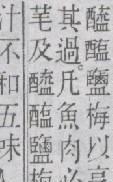 醯醢鹽梅以
其過凡魚肉
芼及醯醢鹽梅
不和五味